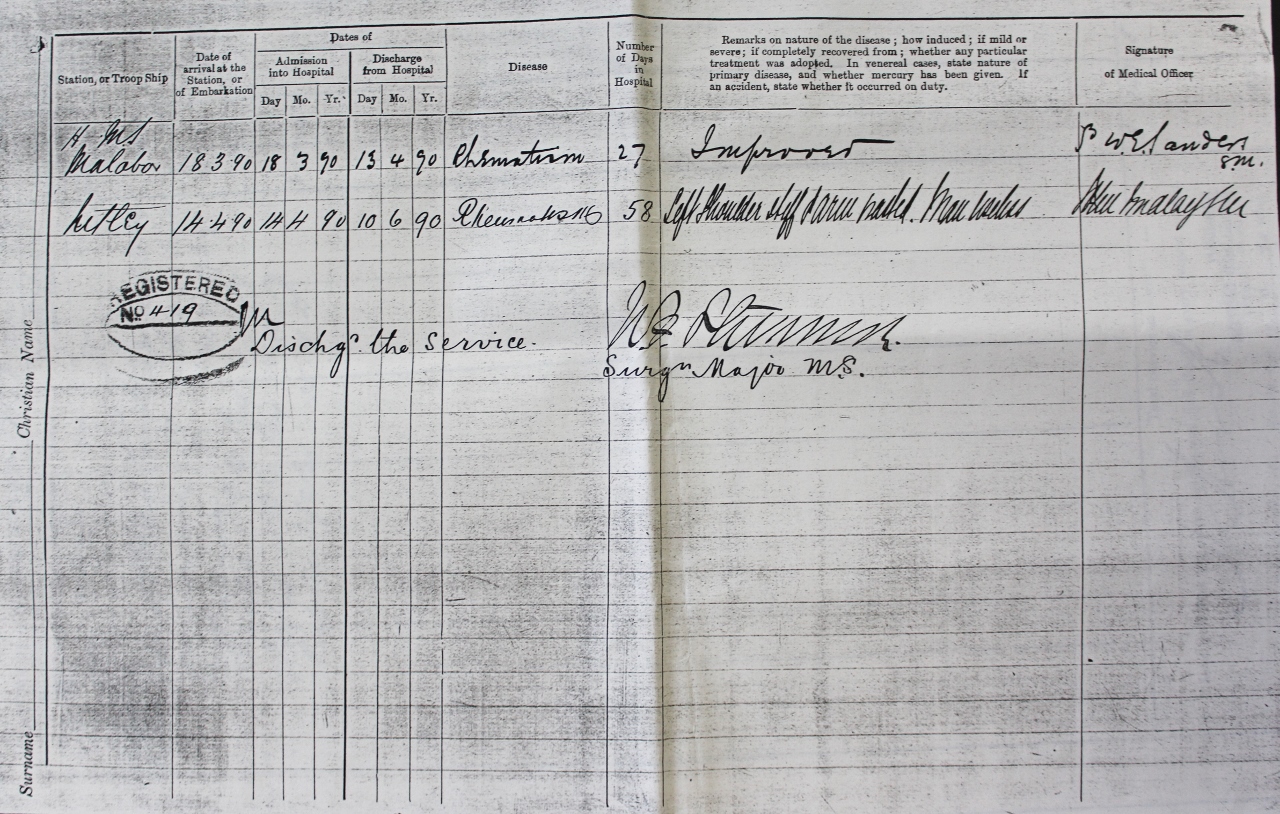 Dates of
Station, or Troop Ship Date of arrival at the Station, or of Embarkation Admission into Hospital Discharge from Hospital Disease Number of Days in Hospital Remarks on nature of the disease; how induced; if mild or severe; if completely recovered from; whether any particular treatment was adopted. In venereal cases, state nature of primary disease, and whether mercury has been given. If an accident, state whether it occurred on duty. Signature of Medical Officer
Day Mo. Yr. Day Mo. Yr.
H MS
Malabar 18 3 90 18 3 90 13 4 90 Rhematism 27 Improved W.E. Sanders
S.M.
Netley 14 4 90 14 4 90 10 6 90 Rheumatism 58 Left Shoulder stiff & arm
REGISTERED
No 419
Dischgd. the Service.
Surgn Major M.S.
Christian Name
Surname